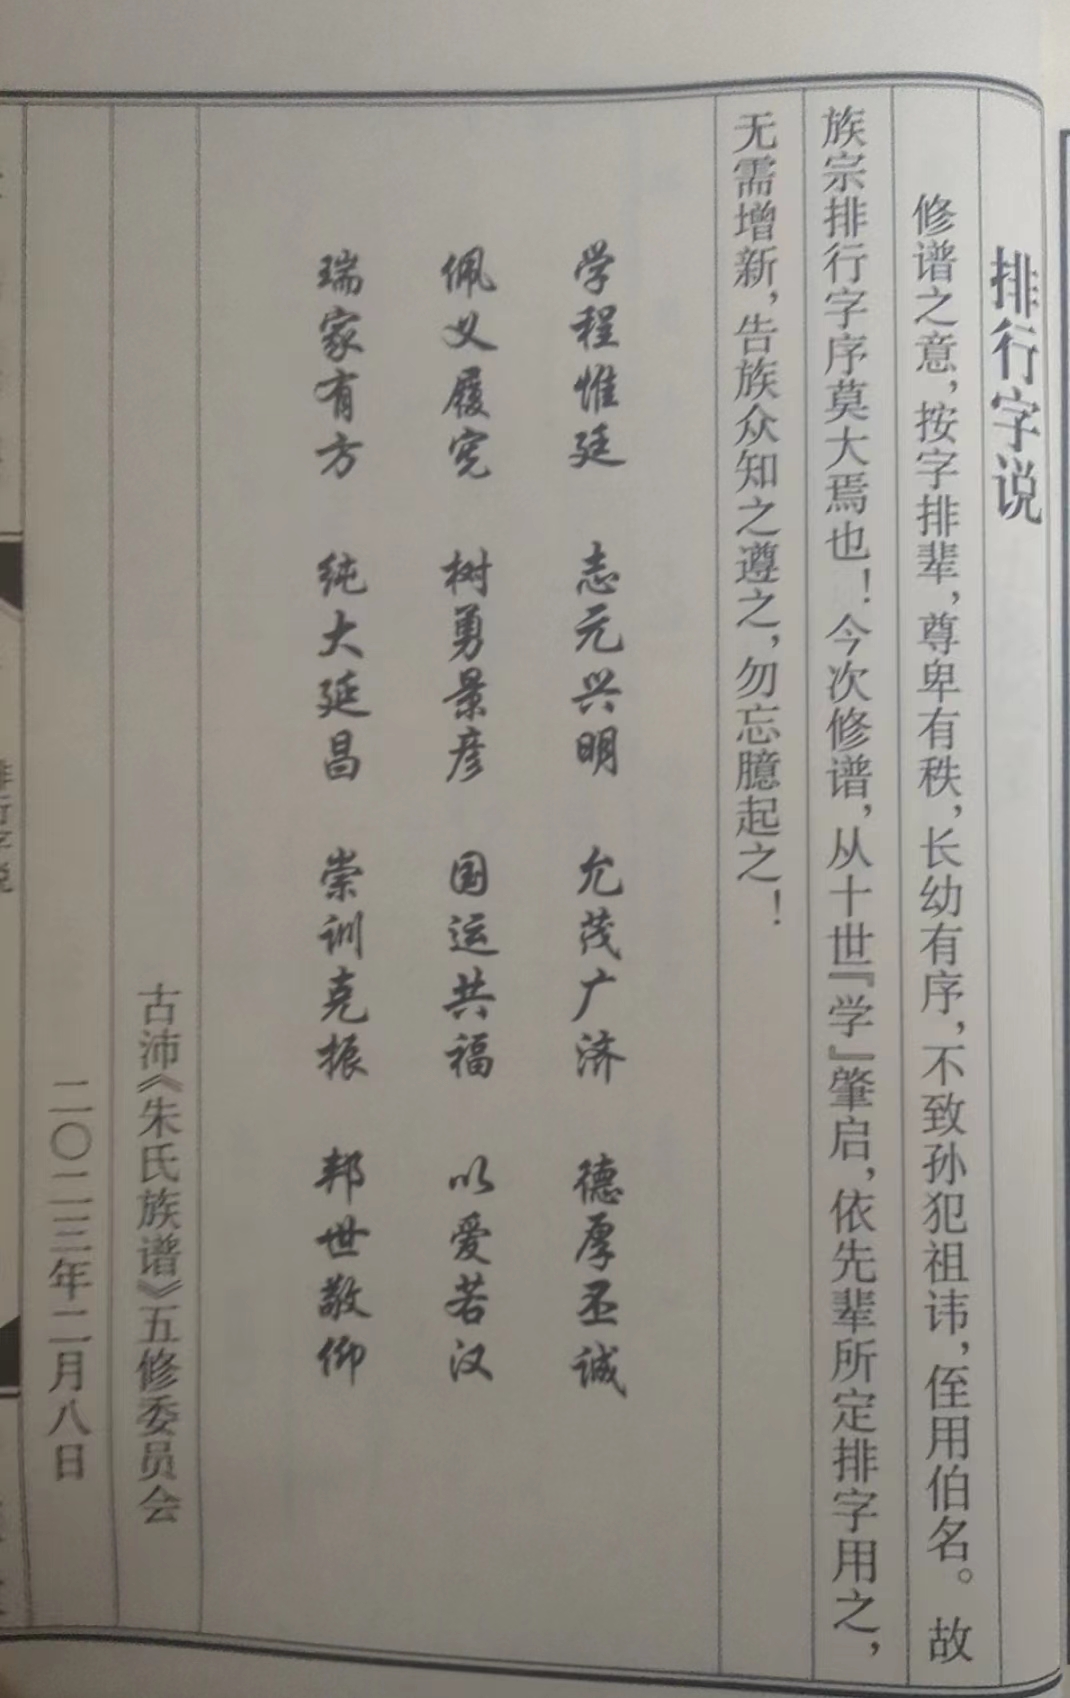 排行字说
修谱之意，按字排辈，尊卑有秩，长幼有序，不致孙犯祖讳，侄用伯名。故
族宗排行字序莫大焉也！今次修谱，从十世『学』肇启，依先辈所定排字用之，
无需增新，告族众知之遵之，勿忘臆起之！
学程惟廷 志元兴明 允茂广济 德厚丕诚
佩义履宪 树勇景彦 国运共福 以爱若汉
瑞家有方 纯大延昌 崇训克振 邦世敬仰
古沛《朱氏族谱》五修委员会
二〇二三年二月八日
排行字说